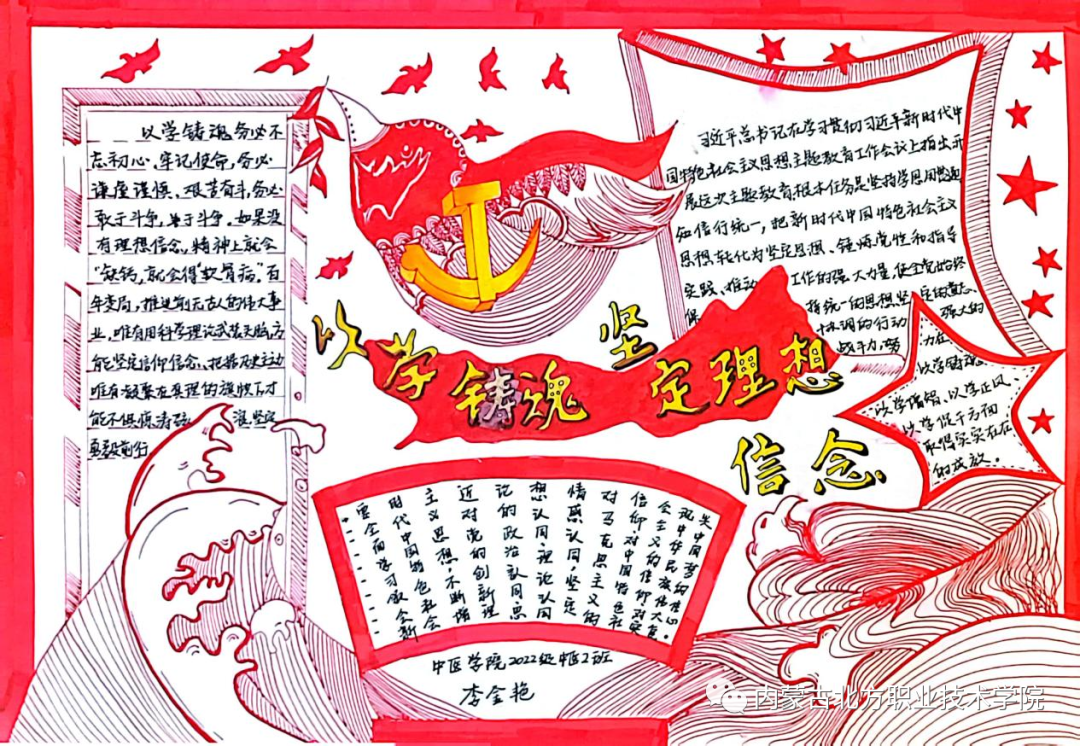 以学铸魂务必不
忘初心、牢记使命,务必
谦虚谨慎、艰苦奋斗,务必
敢于斗争、善于斗争。如果没
有理想信念,精神上就会
“缺钙,就会得软骨病”。百
年变局,推进前无古人的伟大事
业,唯有用科学理论武装头脑,方
能坚定信仰信念、把握历史主动
唯有凝聚在真理的旗帜下才
能不惧惊涛骇浪 坚定
勇毅前行
习近平总书记在学习贯彻习近平新时代中
国特色社会主义思想主题教育工作会议上指出开
展这次主题教育根本任务是坚持学思用贯通
知信行统一,把新时代中国特色社会主义
思想,转化为坚定思想、锤炼党性和指导
实践、推动 工作的强大力量 使全党始终
保 持统一的思想坚定的意志、
协调的行动 强大的
战斗力,努
力在
以学铸魂
以学增智、以学正风、
以学促干方面
取得实实在在
的成效。
以学铸魂 坚定理想
信念
要全面学习领会新
时代中国特色社会
主义思想,不断增
近对党的创新理
记的政治认同思
想认同理论认同
情感认同,坚定
对马克思主义的
信仰对中国特色社
会主义的信仰对实
现中华民族伟大复
中国梦的信心
中医学院2022级中医2班
李金艳
内蒙古北方职业技术学院